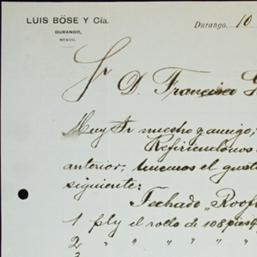 LUIS BÖSE Y Cía.
DURANGO,
MEXICO.
Durango, 10
Sr D. Francisco G
Muy Sr nuestro y amigo,
Refiriéndonos
anterior, tenemos el gusto
siguiente:
Techado "Roof
1 ply el rollo de 108 pies
2 " " " " "